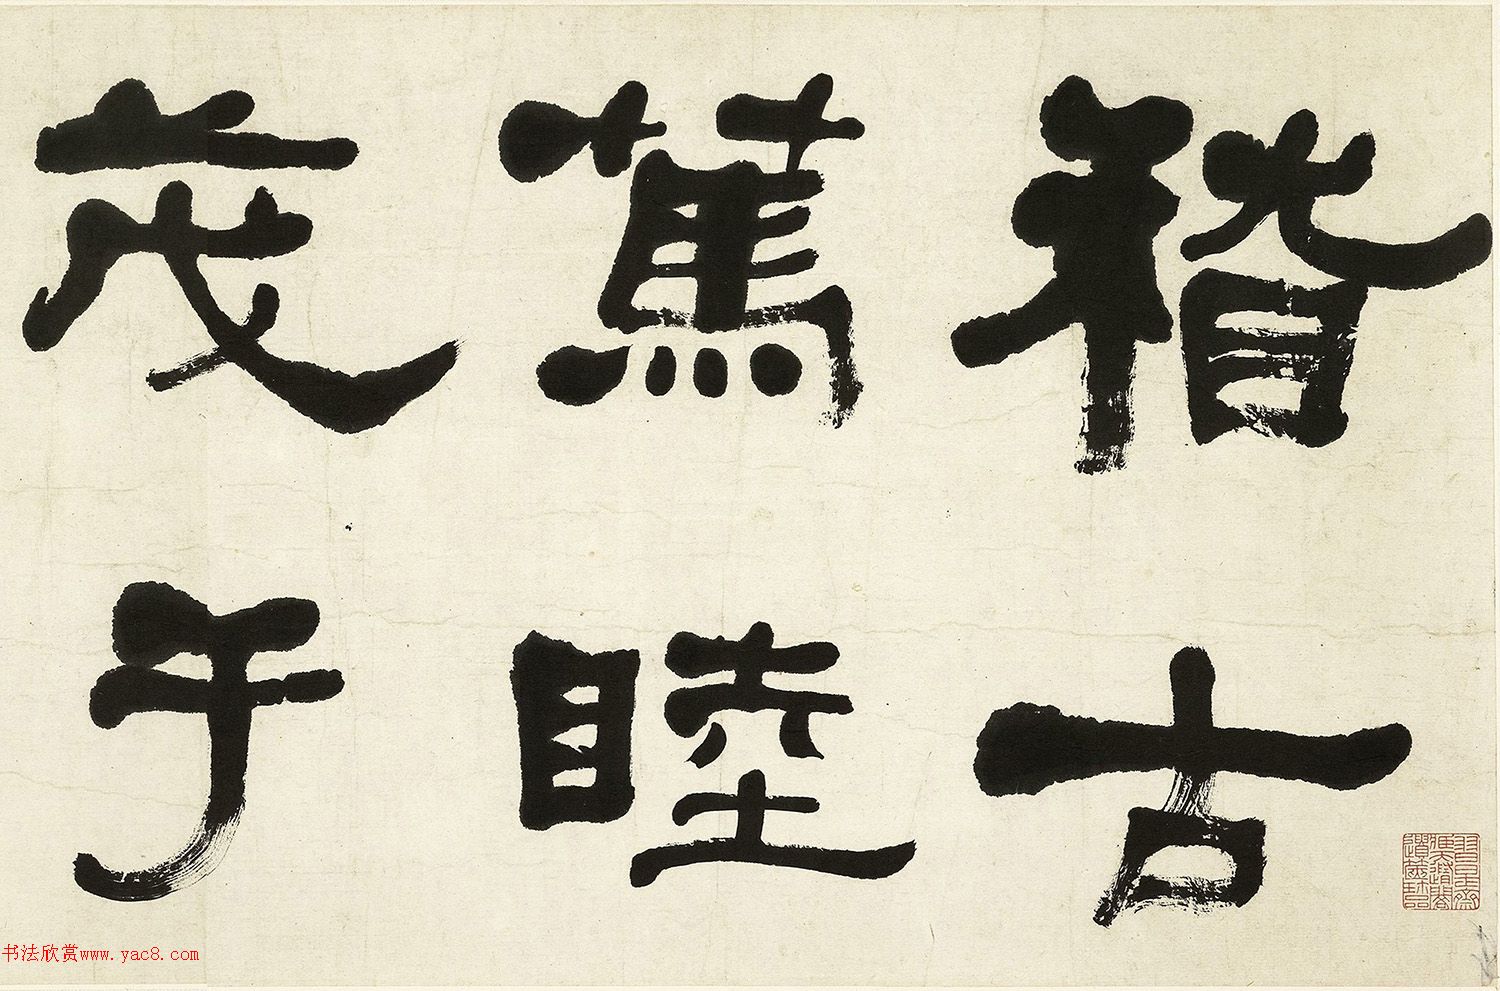 稽古
篤睦
茂于
书法欣赏www.yac8.com